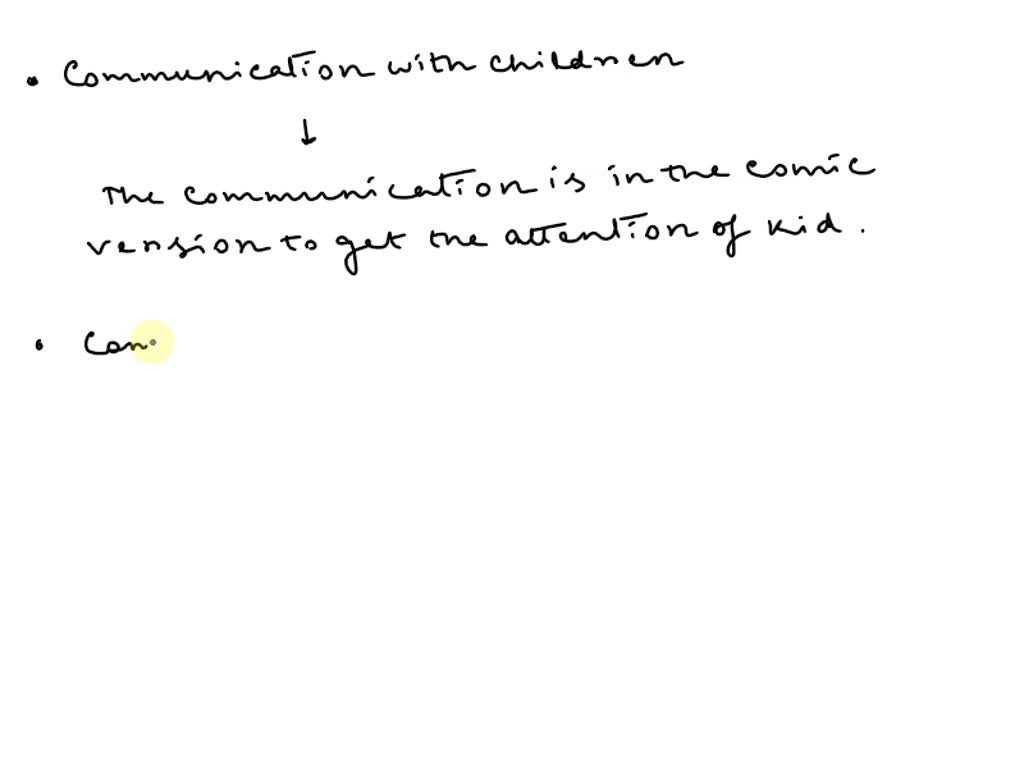 • Communication with children
↓
The communication is in the comic
version to get the attention of kid.
• Com